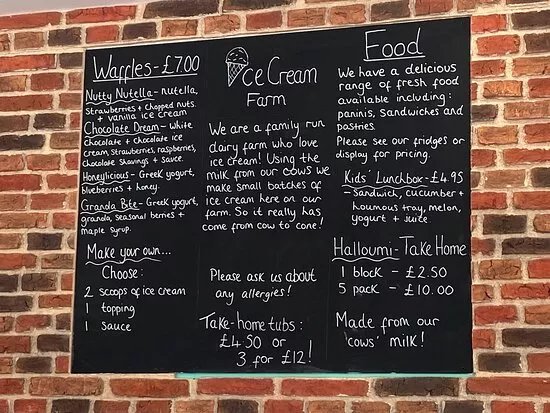 Waffles - £7.00
Nutty Nutella - Nutella,
Strawberries + Chopped nuts.
+ vanilla ice cream
Chocolate Dream - White
Chocolate + Chocolate ice
cream, Strawberries, raspberries,
Chocolate Shavings + Sauce.
Honeylicious - Greek yogurt,
blueberries + honey.
Granola Bite - Greek yogurt,
granola, Seasonal berries +
maple syrup.
Make your own...
Choose:
2 scoops of ice cream
1 topping
1 Sauce
Ice Cream
Farm
We are a family run
dairy farm who love
ice cream! Using the
milk from our cows we
make small batches of
ice cream here on our
farm. So it really has
come from cow to cone!
Please ask us about
any allergies!
Take-home tubs:
£4.50 or
3 for £12!
Food
We have a delicious
range of fresh food
available including:
paninis, Sandwiches and
pastries.
Please see our fridges or
display for pricing.
Kids' Lunchbox - £4.95
- Sandwich, cucumber +
houmous tray, melon,
yogurt + Juice
Halloumi - Take Home
1 block - £2.50
5 pack - £10.00
Made from our
cows' milk!